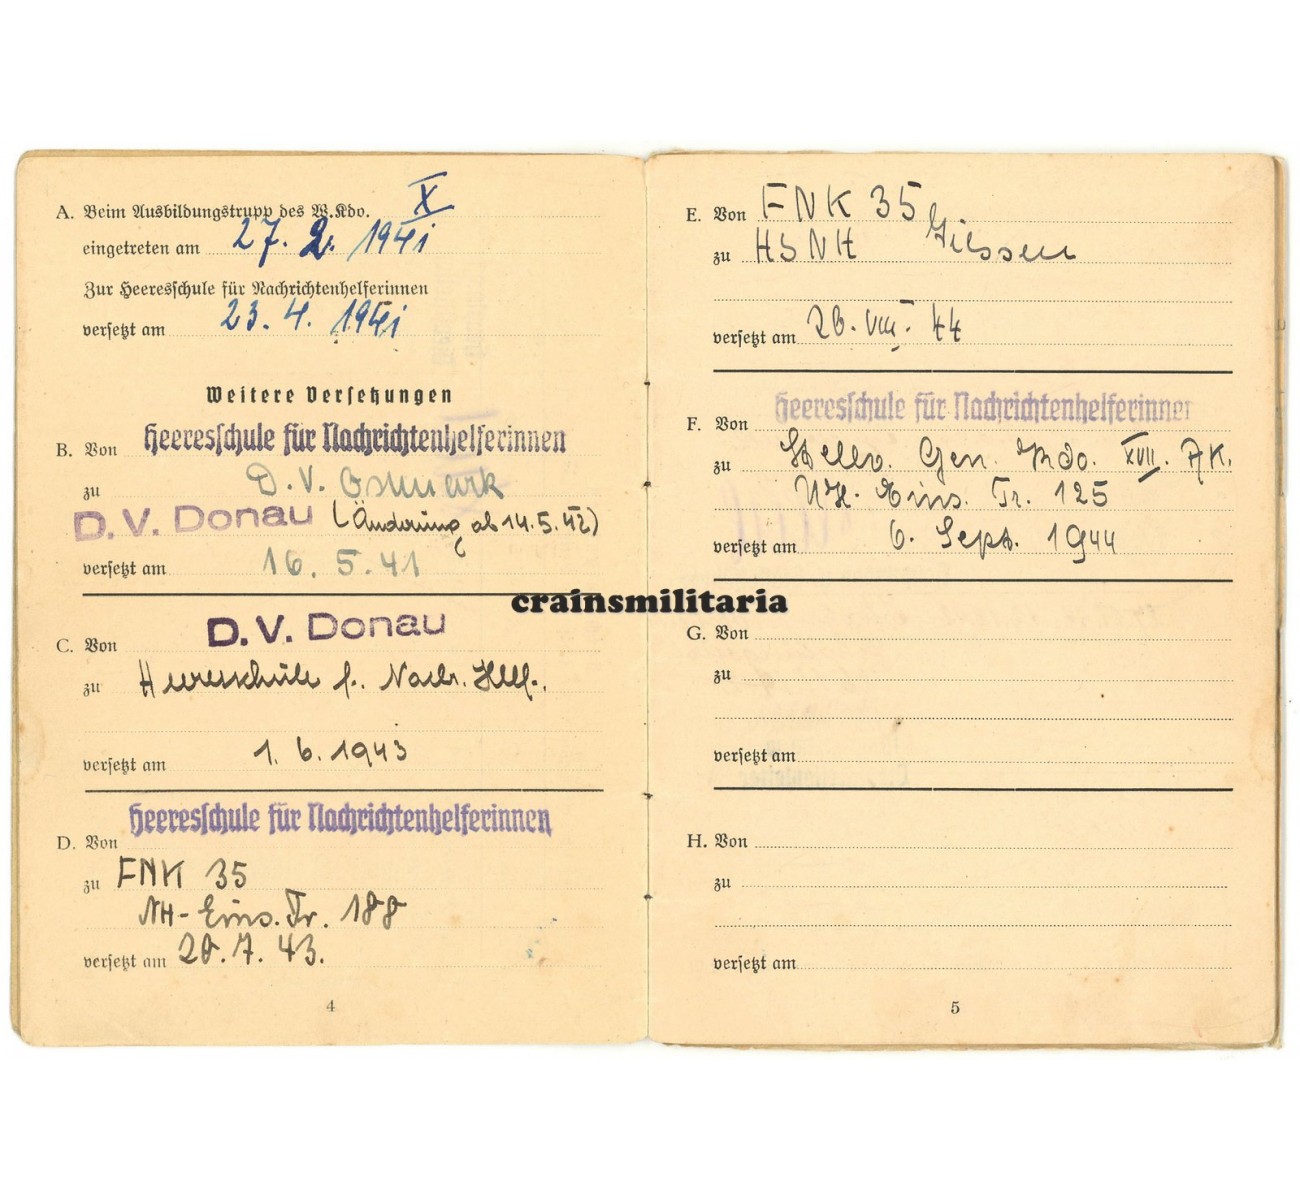 A. Beim Ausbildungstrupp des W.Kdo. X
eingetreten am 27. 2. 1941
Zur Heeresschule für Nachrichtenhelferinnen
versetzt am 23. 4. 1941
Weitere Versetzungen
B. Von Heeresschule für Nachrichtenhelferinnen
zu D. V. Ostmark
D. V. Donau (Änderung ab 14.5.42)
versetzt am 16. 5. 41
C. Von D. V. Donau
zu Heeresschule f. Nachr. Helf.
versetzt am 1. 6. 1943
Heeresschule für Nachrichtenhelferinnen
D. Von
zu FNK 35
NH-Eins. Tr. 188
versetzt am 20. 7. 43.
4
E. Von FNK 35
zu HSNH Giessen
versetzt am 26. VIII. 44
Heeresschule für Nachrichtenhelferinnen
F. Von
zu Stellv. Gen. Kdo. XVII. AK.
NH. Eins. Tr. 125
versetzt am 6. Sept. 1944
crainsmilitaria
G. Von
zu
versetzt am
H. Von
zu
versetzt am
5